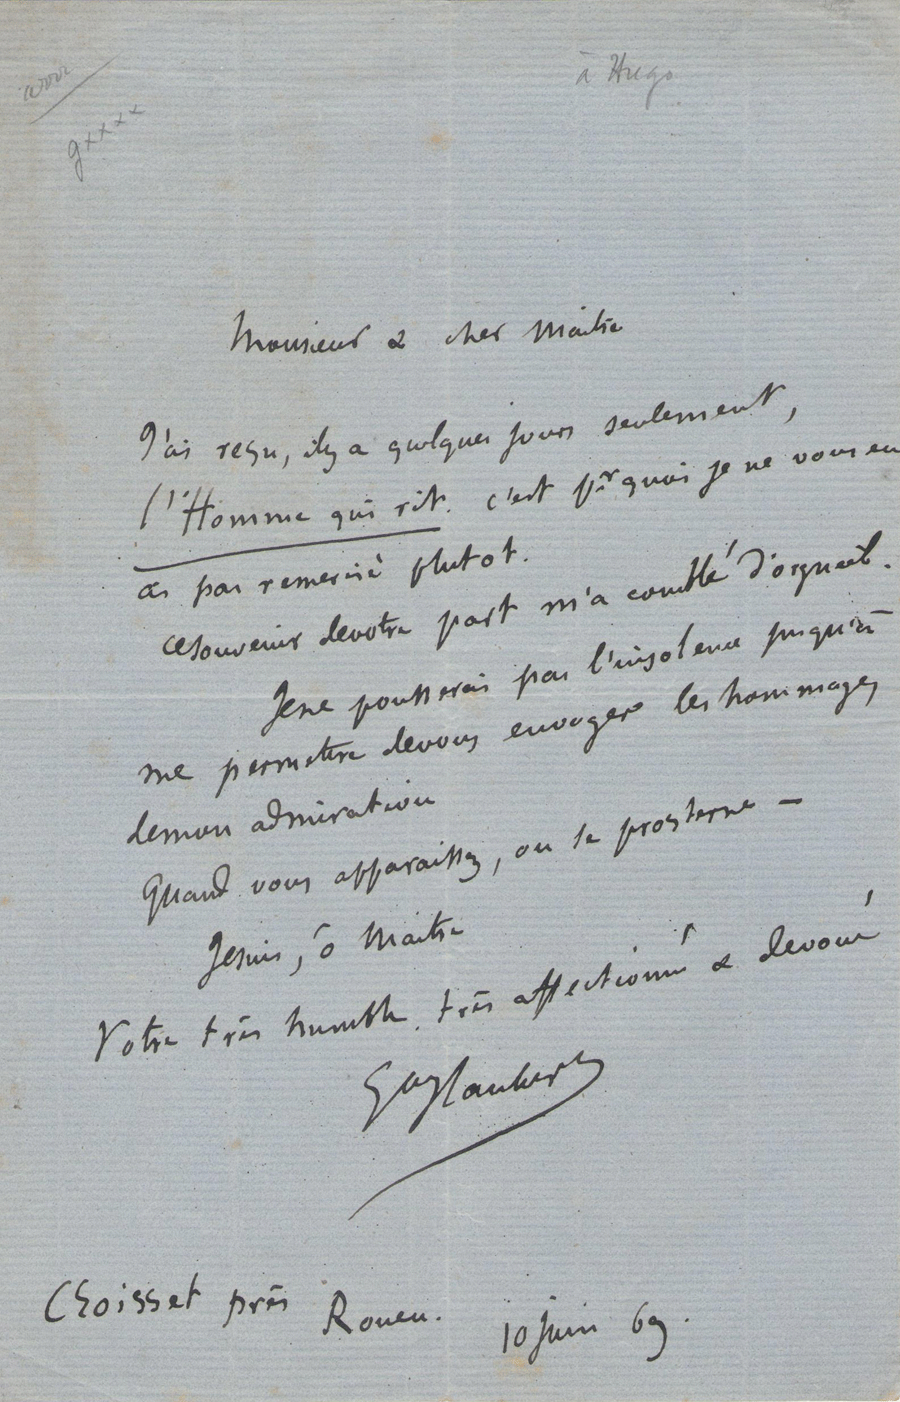 à Hugo
gxxxx
Monsieur & cher Maître
J'ai reçu, il y a quelques jours seulement,
l'Homme qui rit. c'est pr quoi je ne vous en
ai pas remercié plutot.
ce souvenir de votre part m'a comblé d'orgueil.
Je ne pousserai pas l'insolence jusqu'à
me permettre de vous envoyer les hommages
de mon admiration
Quand vous apparaissez, on se prosterne –
Je suis, ô Maître
Votre très humble, très affectionné & dévoué
Gve Flaubert
Croisset près Rouen.
10 juin 69.